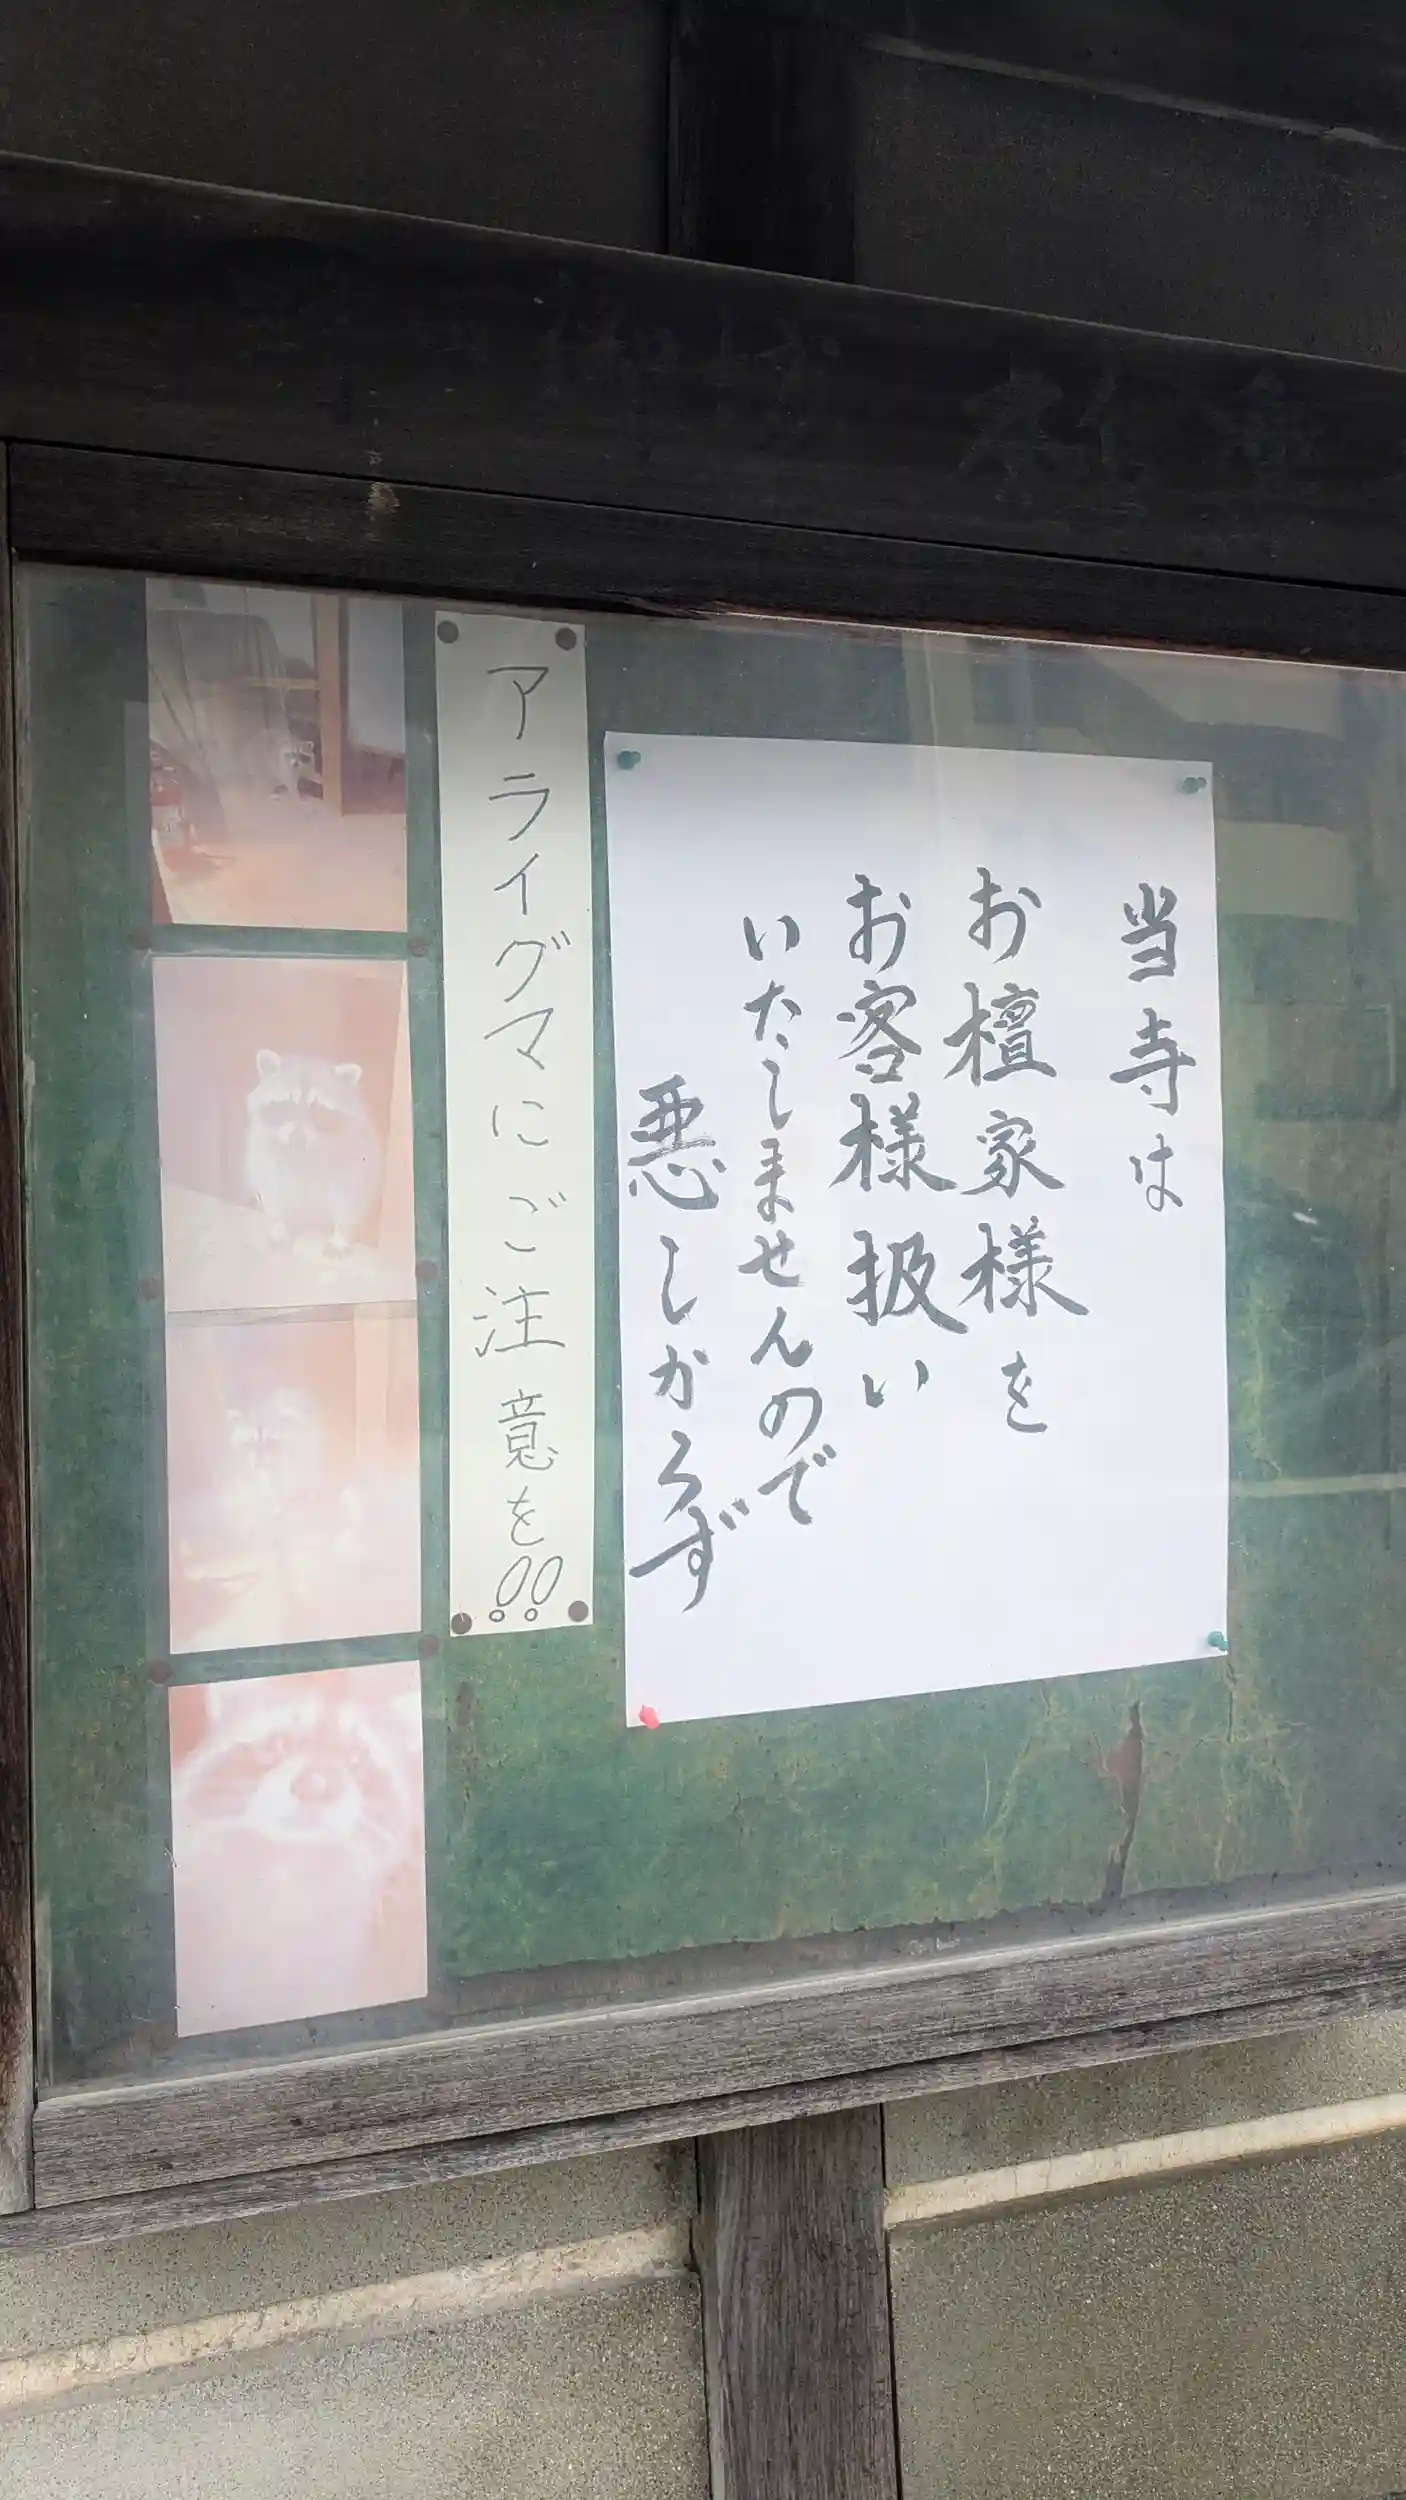 当寺は
お檀家様を
お客様扱い
いたしませんので
悪しからず
アライグマにご注意を!!